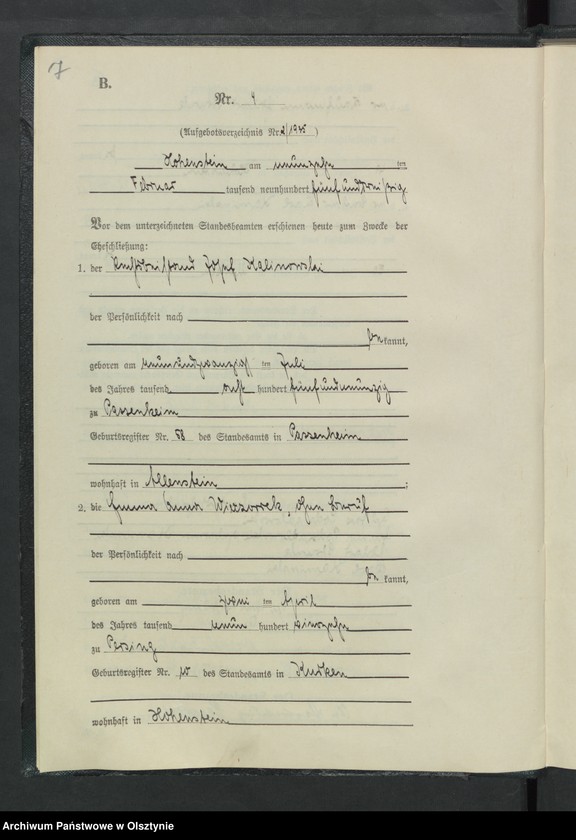 7
B.
Nr. 4
(Aufgebotsverzeichnis Nr. /1935)
Hohenstein am neunzehn ten
Februar tausend neunhundert fünfunddreißig
Vor dem unterzeichneten Standesbeamten erschienen heute zum Zwecke der
Eheschließung:
1. der Josef Kalinowski
der Persönlichkeit nach
be kannt,
geboren am neunundzwanzigsten Juli
des Jahres tausend acht hundert fünfundneunzig
zu Passenheim
Geburtsregister Nr. 88 des Standesamts in Passenheim
wohnhaft in Allenstein ;
2. die Emma Anna Wieczorrek, ohne Beruf
der Persönlichkeit nach
be kannt,
geboren am zwei ten April
des Jahres tausend neun hundert
zu Persing
Geburtsregister Nr. des Standesamts in
wohnhaft in Hohenstein
Archiwum Państwowe w Olsztynie